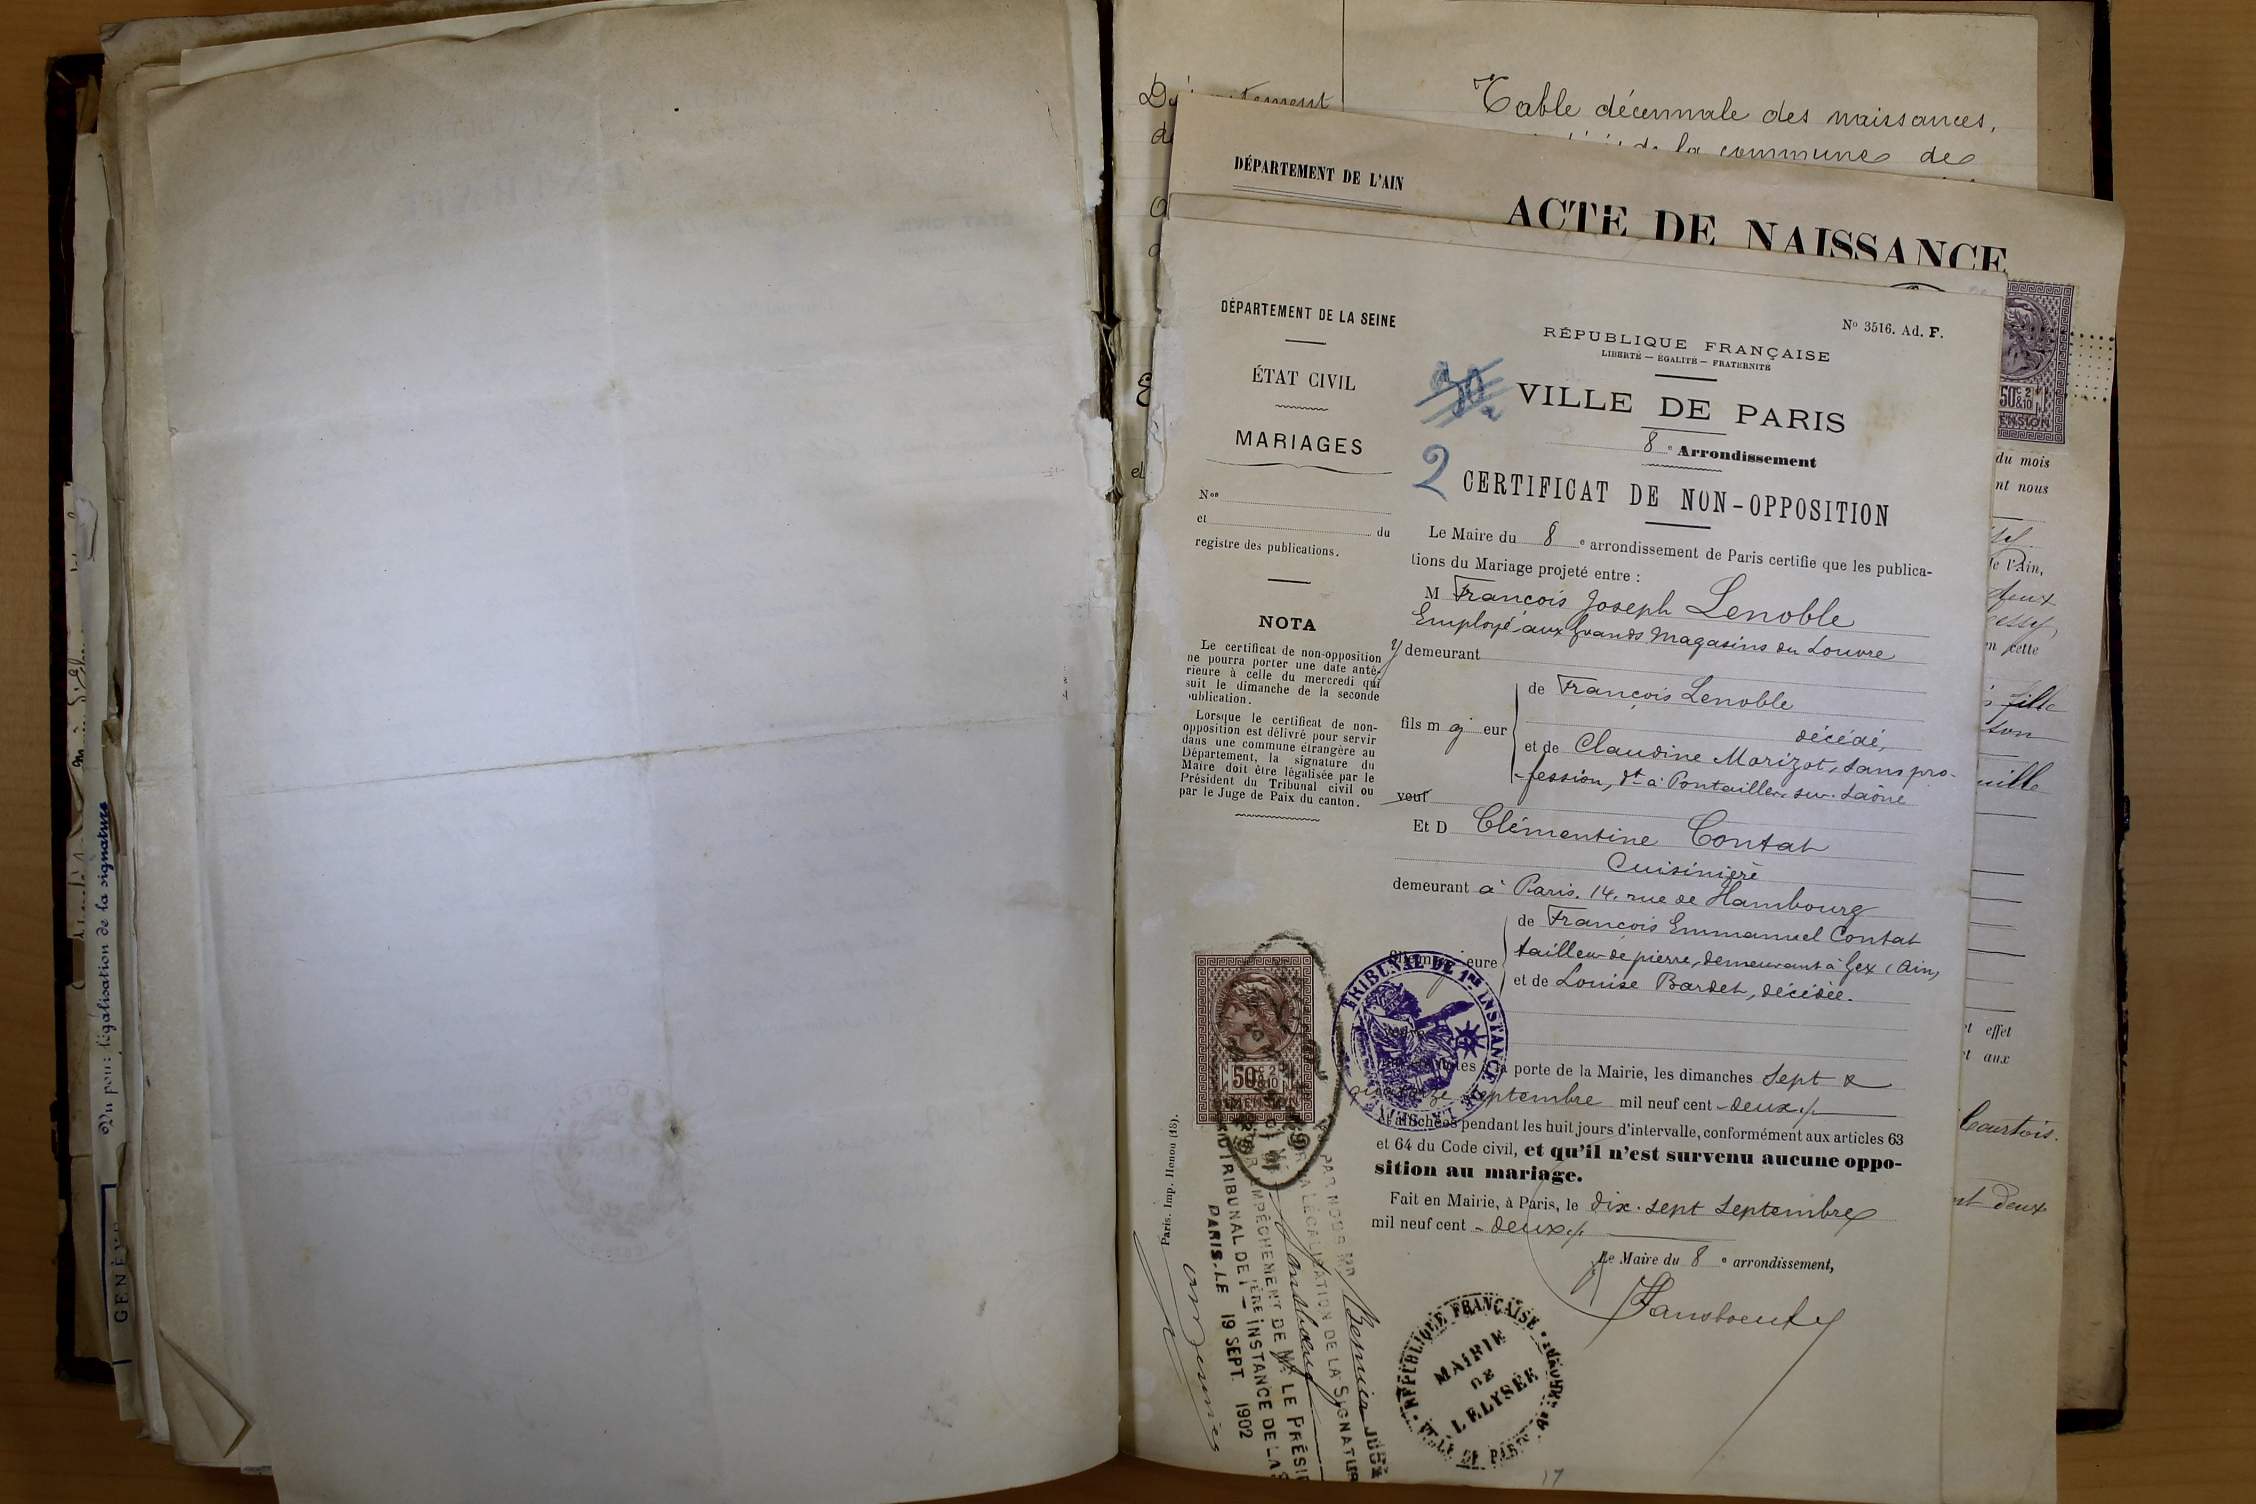 Vu pour légalisation de la signature
GENÈV
Table décennale des naissances,
de la commune de
DÉPARTEMENT DE L'AIN
ACTE DE NAISSANCE
DÉPARTEMENT DE LA SEINE
ÉTAT CIVIL
MARIAGES
Nos
et du
registre des publications.
NOTA
Le certificat de non-opposition
ne pourra porter une date anté-
rieure à celle du mercredi qui
suit le dimanche de la seconde
publication.
Lorsque le certificat de non-
opposition est délivré pour servir
dans une commune étrangère au
Département, la signature du
Maire doit être légalisée par le
Président du Tribunal civil ou
par le Juge de Paix du canton.
No 3516. Ad. F.
RÉPUBLIQUE FRANÇAISE
LIBERTÉ — ÉGALITÉ — FRATERNITÉ
VILLE DE PARIS
8e Arrondissement
2 CERTIFICAT DE NON-OPPOSITION
Le Maire du 8e arrondissement de Paris certifie que les publica-
tions du Mariage projeté entre :
M François Joseph Lenoble
Employé aux Grands Magasins du Louvre
y demeurant
de François Lenoble
décédé,
fils m aj eur
et de Claudine Morizot, sans pro-
fession, dt à Pontailler-sur-Saône
veuf
Et D Clémentine Contat
Cuisinière
demeurant à Paris. 14, rue de Hambourg
de François Emmanuel Contat
tailleur de pierre, demeurant à Gex (Ain)
eure
et de Louise Bardet, décédée.
porte de la Mairie, les dimanches sept &
quatorze septembre mil neuf cent deux
affichées pendant les huit jours d'intervalle, conformément aux articles 63
et 64 du Code civil, et qu'il n'est survenu aucune oppo-
sition au mariage.
Fait en Mairie, à Paris, le dix-sept Septembre
mil neuf cent deux
Le Maire du 8e arrondissement,
TRIBUNAL DE 1re INSTANCE DE LA SEINE
RÉPUBLIQUE FRANÇAISE
MAIRIE
DE
L'ELYSÉE
VILLE DE PARIS
Paris. Imp. Henou (18).
50c 2 &10
DIMENSION
PAR NOUS Mr
JUGE
LA LÉGALISATION DE LA SIGNATUR
EMPÊCHEMENT DE Mr LE PRÉSI
TRIBUNAL DE 1ÈRE INSTANCE DE LA S
PARIS, LE 19 SEPT. 1902
50c 2 &10
ENSION
du mois
nt nous
de l'Ain,
deux
en cette
fille
et effet
t aux
Courtois.
deux
17